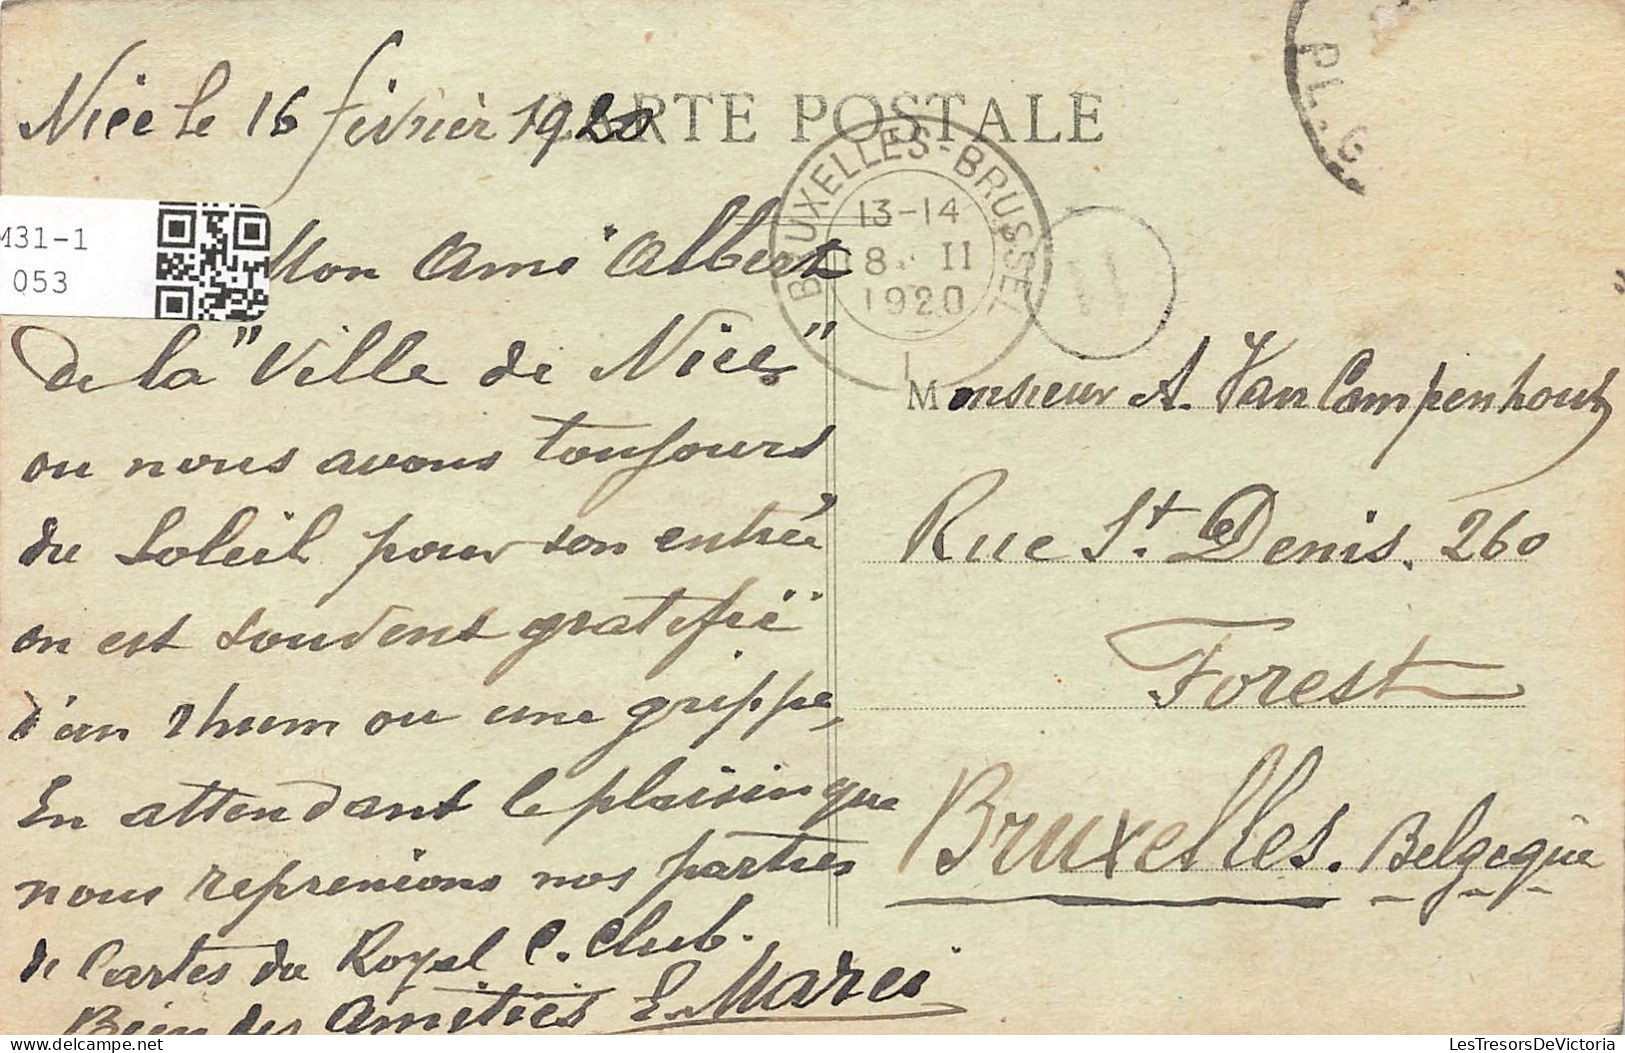 Nice le 16 février 1920
CARTE POSTALE
PL. G
BRUXELLES-BRUSSEL
13-14
18 II
1920
1
11
M31-1
053
Mon Ami Albert
de la "Ville de Nice"
ou nous avons toujours
du Soleil pour son entrée
on est souvent gratifié
d'un rhum ou une grippe,
En attendant le plaisir que
nous reprenions nos parties
de Cartes du Royal C. Club.
Bien des Amitiés E. Marci
Monsieur A. Van Campenhout
Rue St. Denis. 260
Forest
Bruxelles. Belgeque
LesTresorsDeVictoria